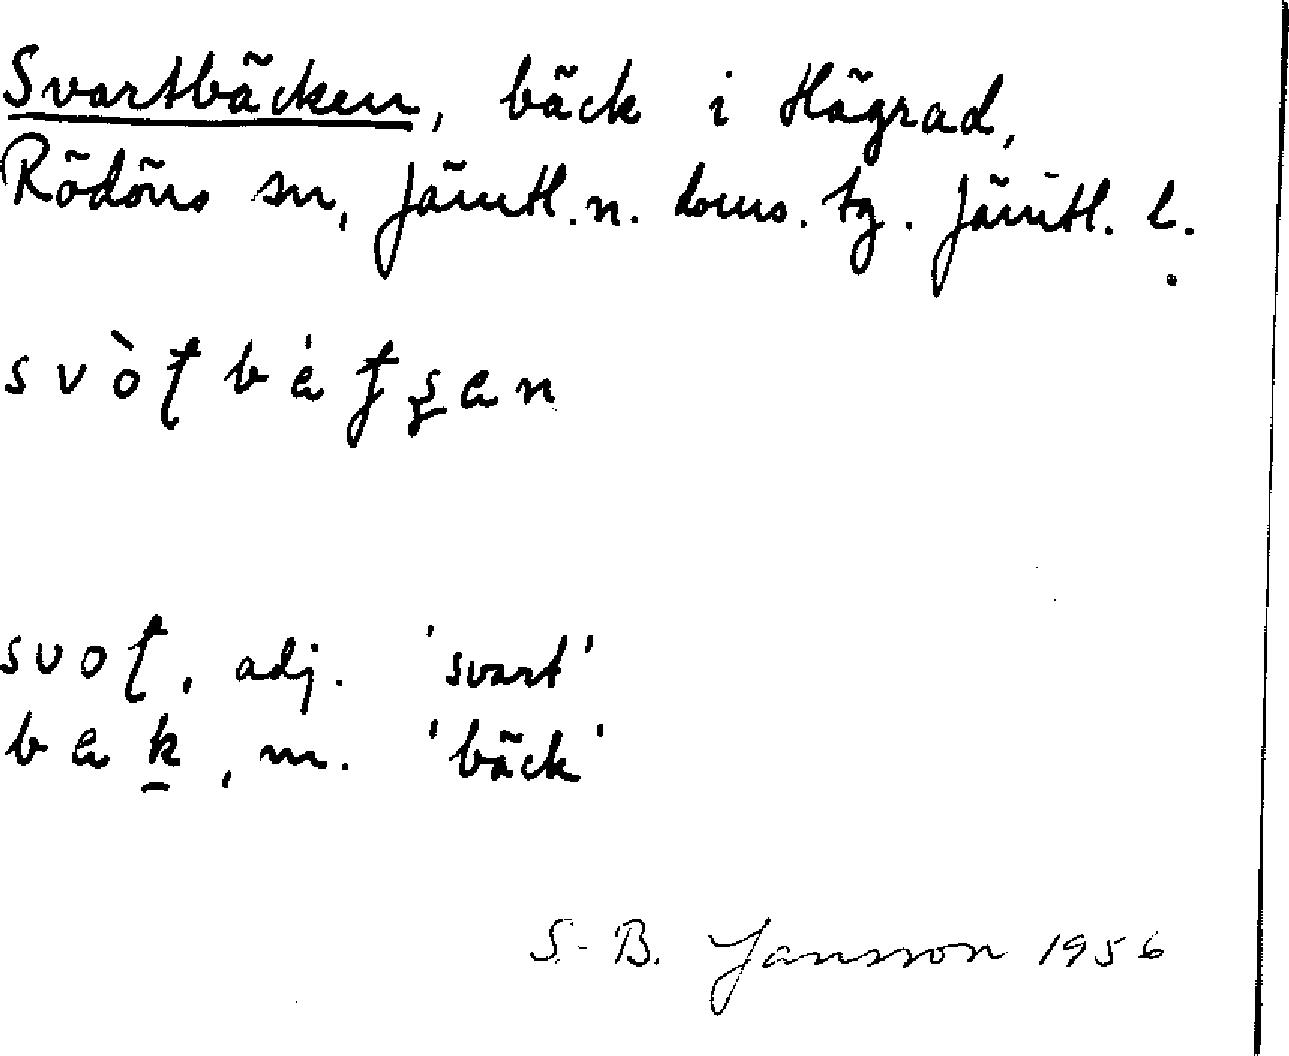 Svartbäcken, bäck i Hägrad,
Rödöns sn, Jämtl. n. doms. tg. Jämtl. l.
svot, adj. 'svart'
bak, m. 'bäck'
S-B. Jansson 1956